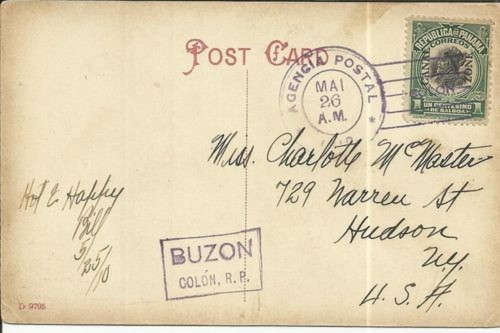 POST CARD
AGENCIA POSTAL
MAI
26
A.M.
REPUBLICA DE PANAMA
CORREOS
CANAL ZONE
1 UN CENTESIMO 1
DE BALBOA
Miss. Charlotte McMaster
729 Warren St
Hudson
N.Y.
U.S.A.
Hot & Happy
Bill
5/25/10
BUZON
COLÓN, R.P.
D 9795